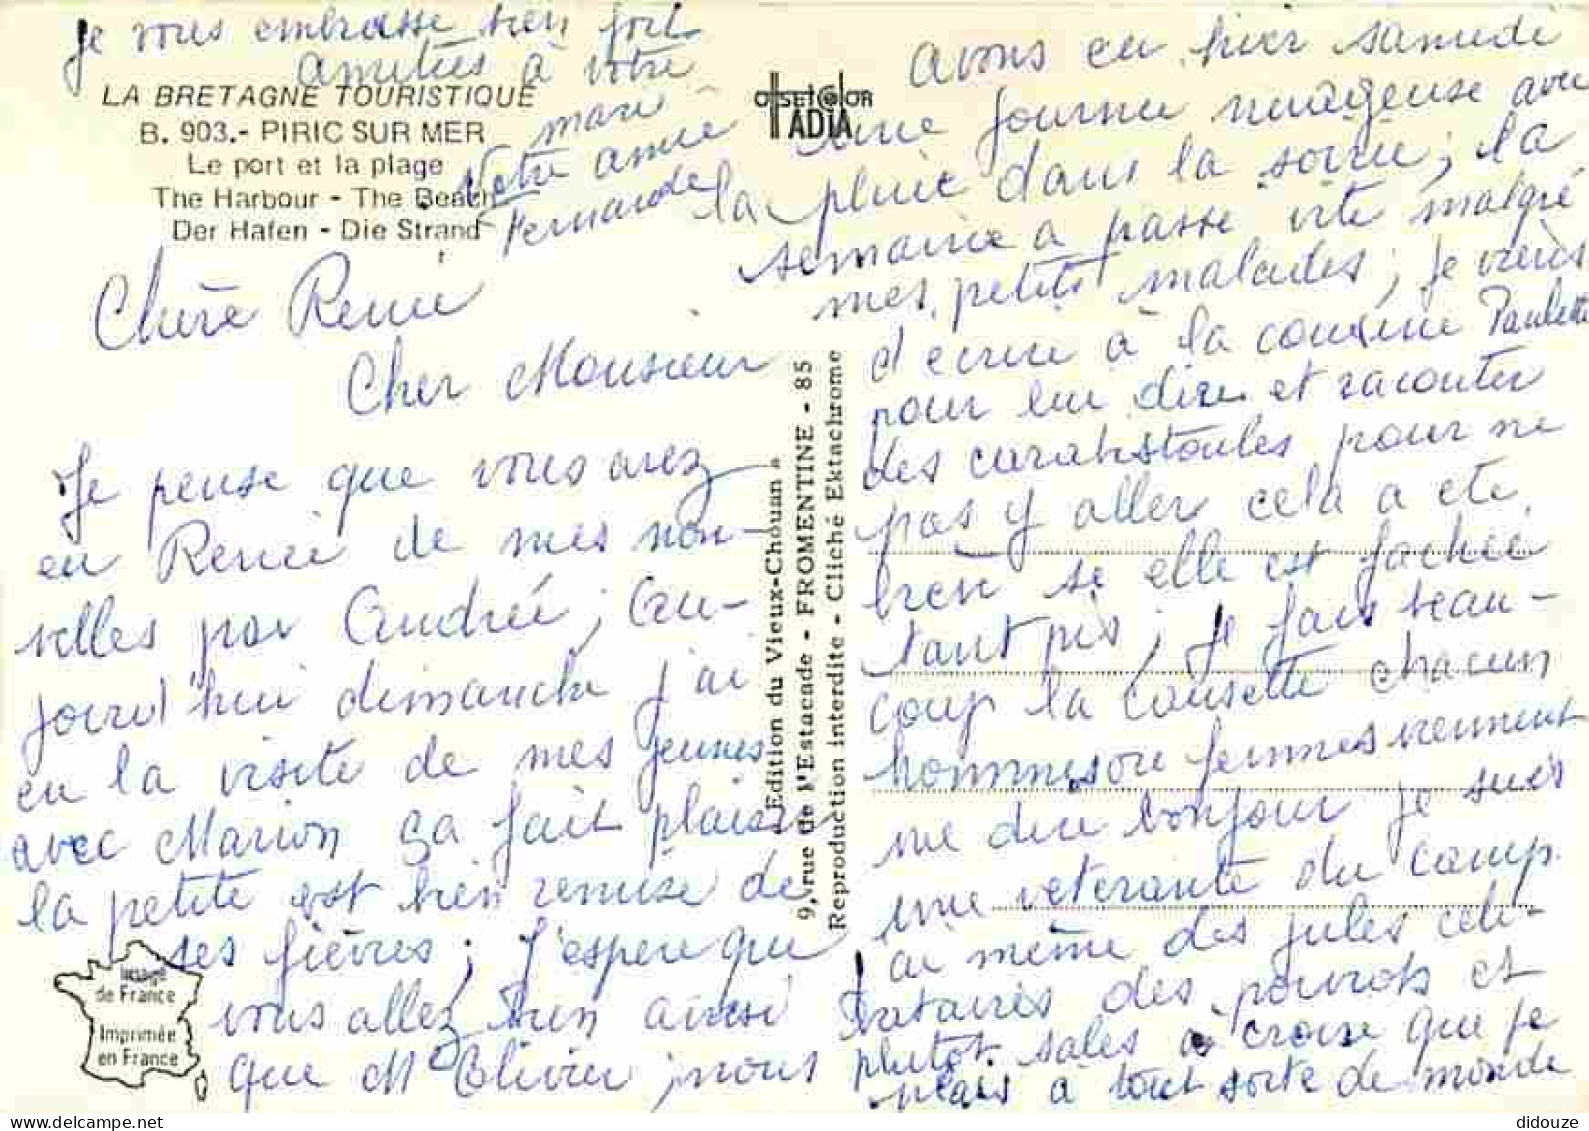 Je vous embrasse bien fort
amitiés à votre
mari
Votre amie
Fernande
LA BRETAGNE TOURISTIQUE
B. 903.- PIRIC SUR MER
Le port et la plage
The Harbour - The Beach
Der Hafen - Die Strand
OffsetColor
ADIA
Chère Renée
Cher Monsieur
Je pense que vous avez
eu Renée de mes nou-
velles par Andrée; au-
jourd'hui dimanche j'ai
eu la visite de mes jeunes
avec Marion ça fait plaisir
la petite est bien remise de
ses fièvres; j'espère que
vous allez bien ainsi
que Mr Olivier; nous
Image
de France
Imprimée
en France
"Edition du Vieux-Chouan"
9, rue de l'Estacade - FROMENTINE - 85
Reproduction interdite - Cliché Ektachrome
avons eu hier samedi
une journée nuageuse avec
la pluie dans la soirée; la
semaine a passé vite malgré
mes petits malades; je viens
d'écrire à la cousine Paulette
pour lui dire et raconter
des carabistoules pour ne
pas y aller cela a été
bien si elle est fachée
tant pis; je fais beau-
coup la causette chacun
hommes ou femmes viennent
me dire bonjour je suis
une vétérante du camp
j'ai même des jules céli-
bataires des poivrots et
plutot sales à croire que je
plais à tout sorte de monde
didouze